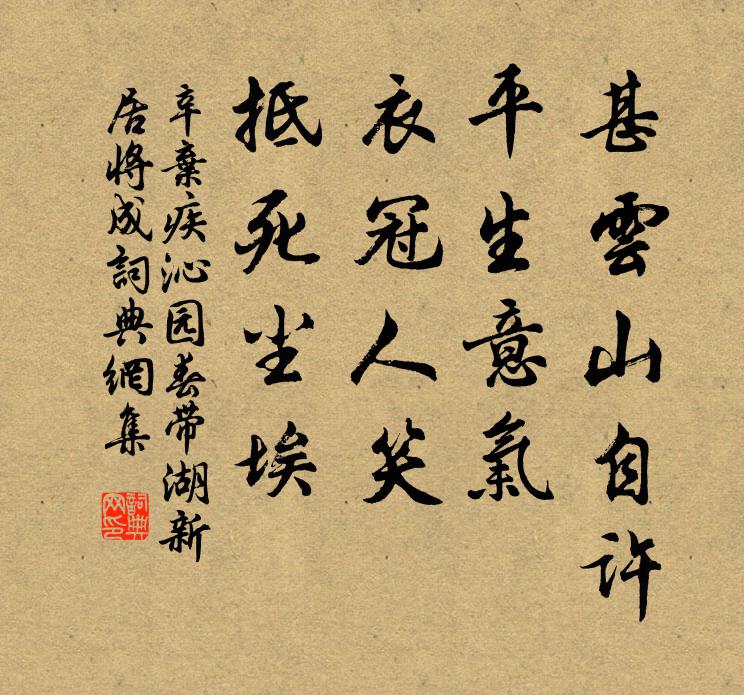 甚雲山自許
平生意氣
衣冠人笑
抵死尘埃
辛棄疾沁园春带湖新
居将成詞典網集